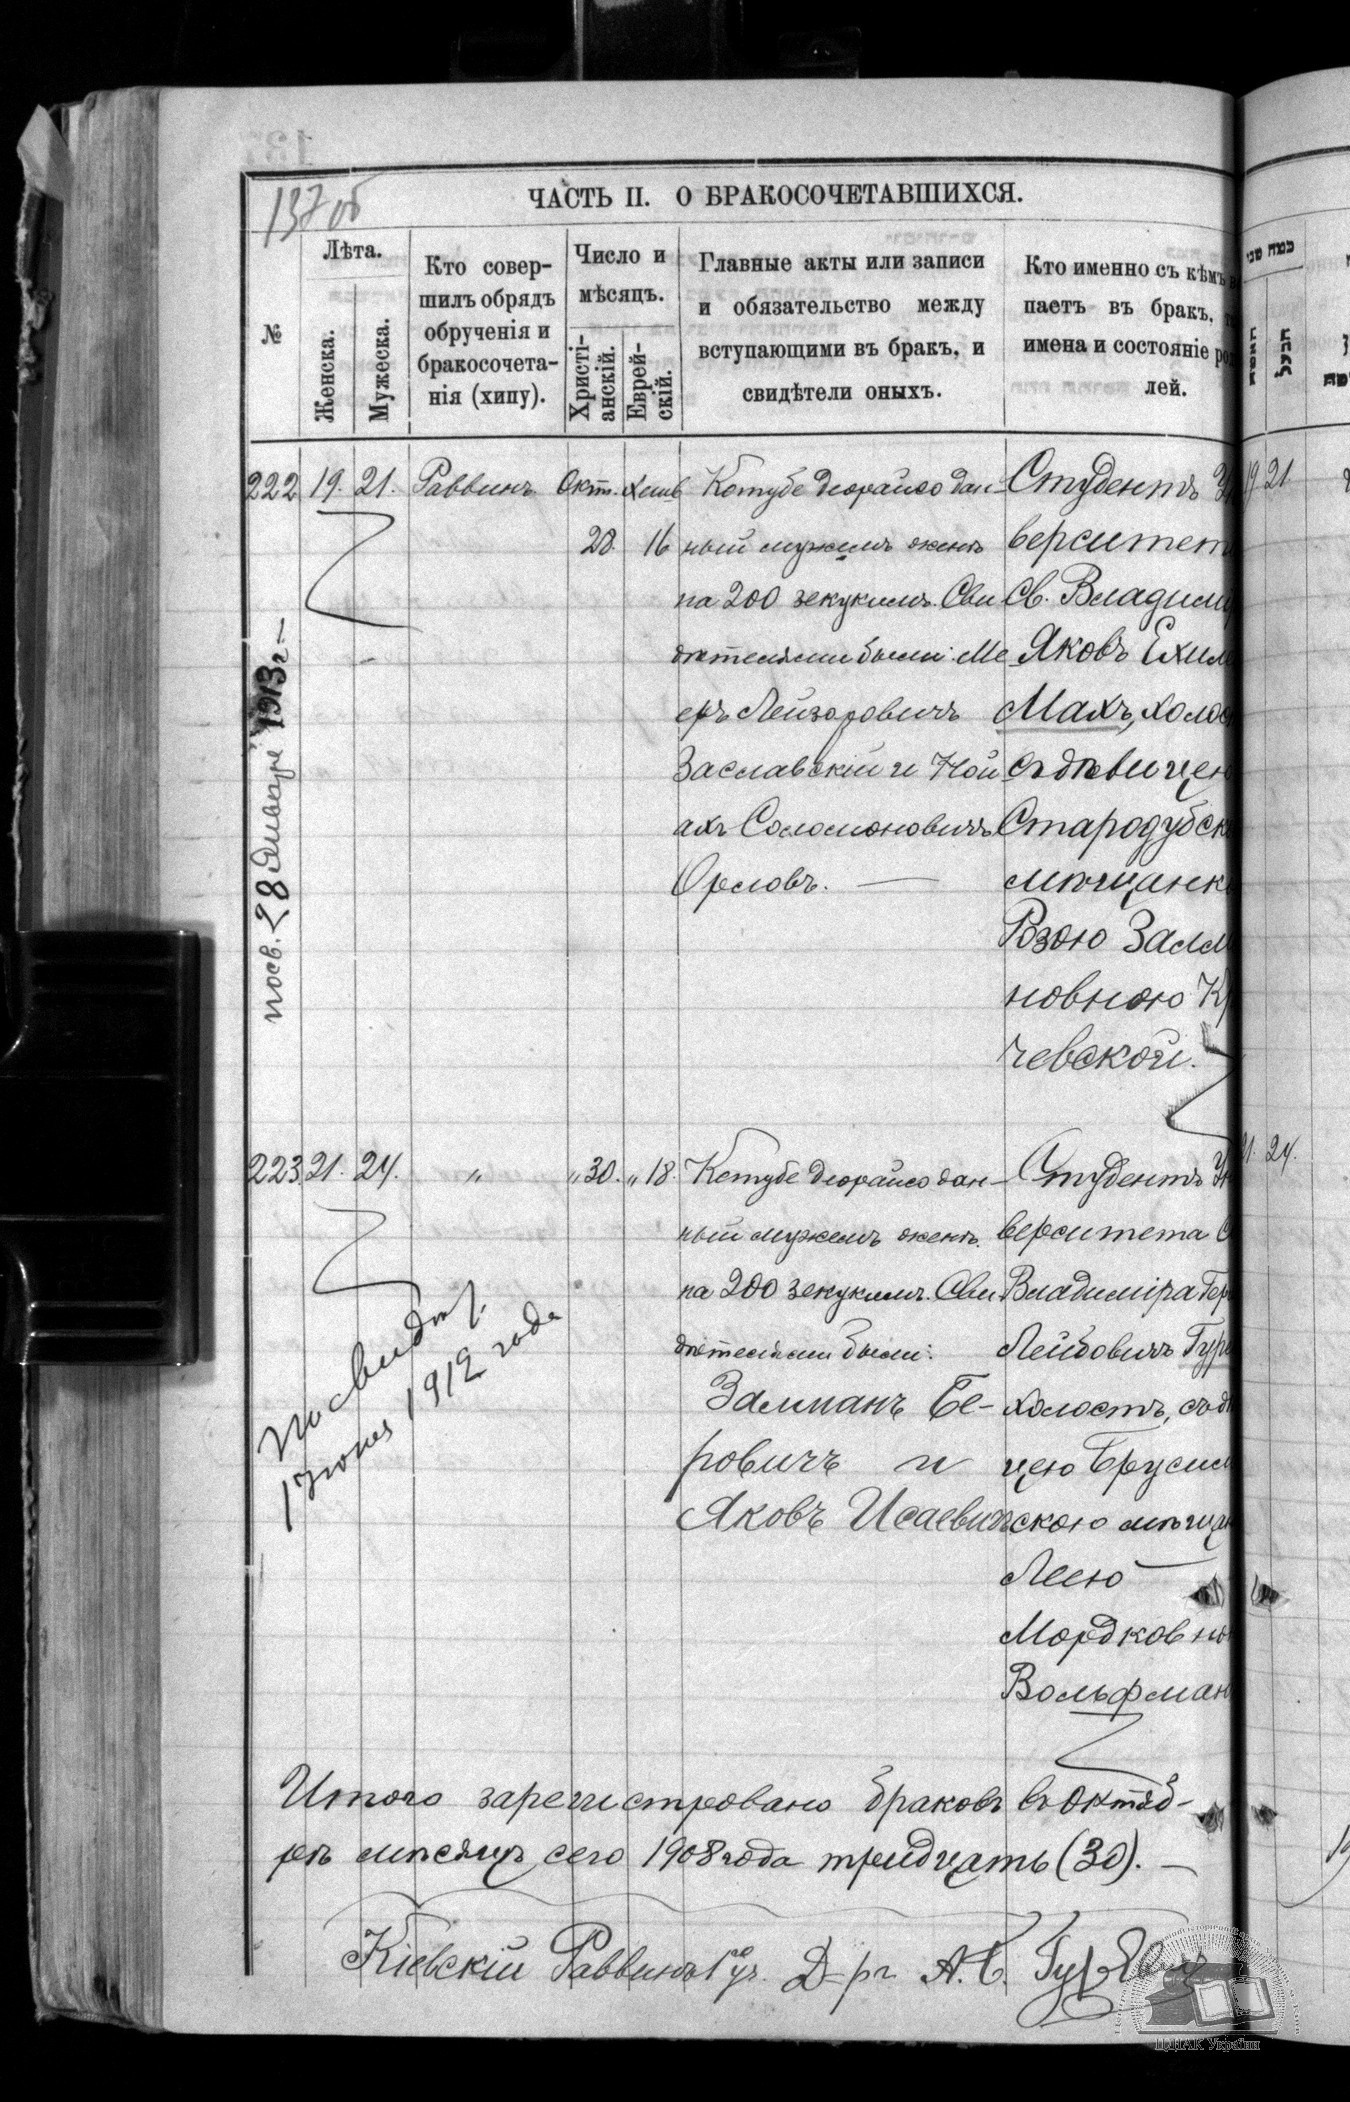 137 об
ЧАСТЬ II. О БРАКОСОЧЕТАВШИХСЯ.
№
Лѣта.
Женска.
Мужеска.
Кто совер-
шилъ обрядъ
обрученія и
бракосочета-
нія (хипу).
Число и
мѣсяцъ.
Христі-
анскій.
Еврей-
скій.
Главные акты или записи
и обязательство между
вступающими въ бракъ, и
свидѣтели оныхъ.
Кто именно съ кѣмъ
паетъ въ бракъ,
имена и состояніе
лей.
222 19. 21. Раввинъ Окт. Хешв
28. 16
Кетубе деорайсо дан-
ный мужемъ женѣ
на 200 зекукимъ. Сви
дѣтелями были: Ме
еръ Лейзоровичъ
Заславскій и Ной
ахъ Соломоновичъ
Орловъ. —
Студентъ Уни
верситета
Св. Владимі
Яковъ Ехил
Махъ, холос
съ дѣвицею
Стародубск
мѣщанк
Розою Залм
новною К
чевской.
19 21
посв. 28 Января 1913 г —
223. 21. 24. „ „ 30. „ 18.
Кетубе деорайсо дан-
ный мужемъ женѣ
на 200 зекукимъ. Сви
дѣтелями были:
Залманъ Бе-
ровичъ и
Яковъ Исаевичъ
Студентъ Уни
верситета С
Владиміра Гер
Лейбовичъ Гуре
холостъ, съ дѣ
цею Брусил
скою мѣщан
Леею
Мордковно
Вольфман
21. 24.
посвидѣт.
1 іюня 1912 года
Итого зарегистровано браковъ въ Октяб-
рѣ мѣсяцѣ сего 1908 года тридцать (30). —
Кіевскій Раввинъ Д-ръ А. Б. Гуревичъ
ЦДІАК України